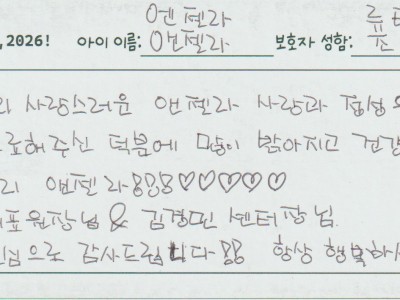 엔젤라
,2026! 아이 이름: 앤젤라 보호자 성함:
사랑스러운 앤젤라 사랑과 정성
료해주신 덕분에 많이 밝아지고 건강
리 앤젤라!!! ♡♡♡♡♡
표원장님 & 김경민 센터장님.
심으로 감사드립니다!! 항상 행복하